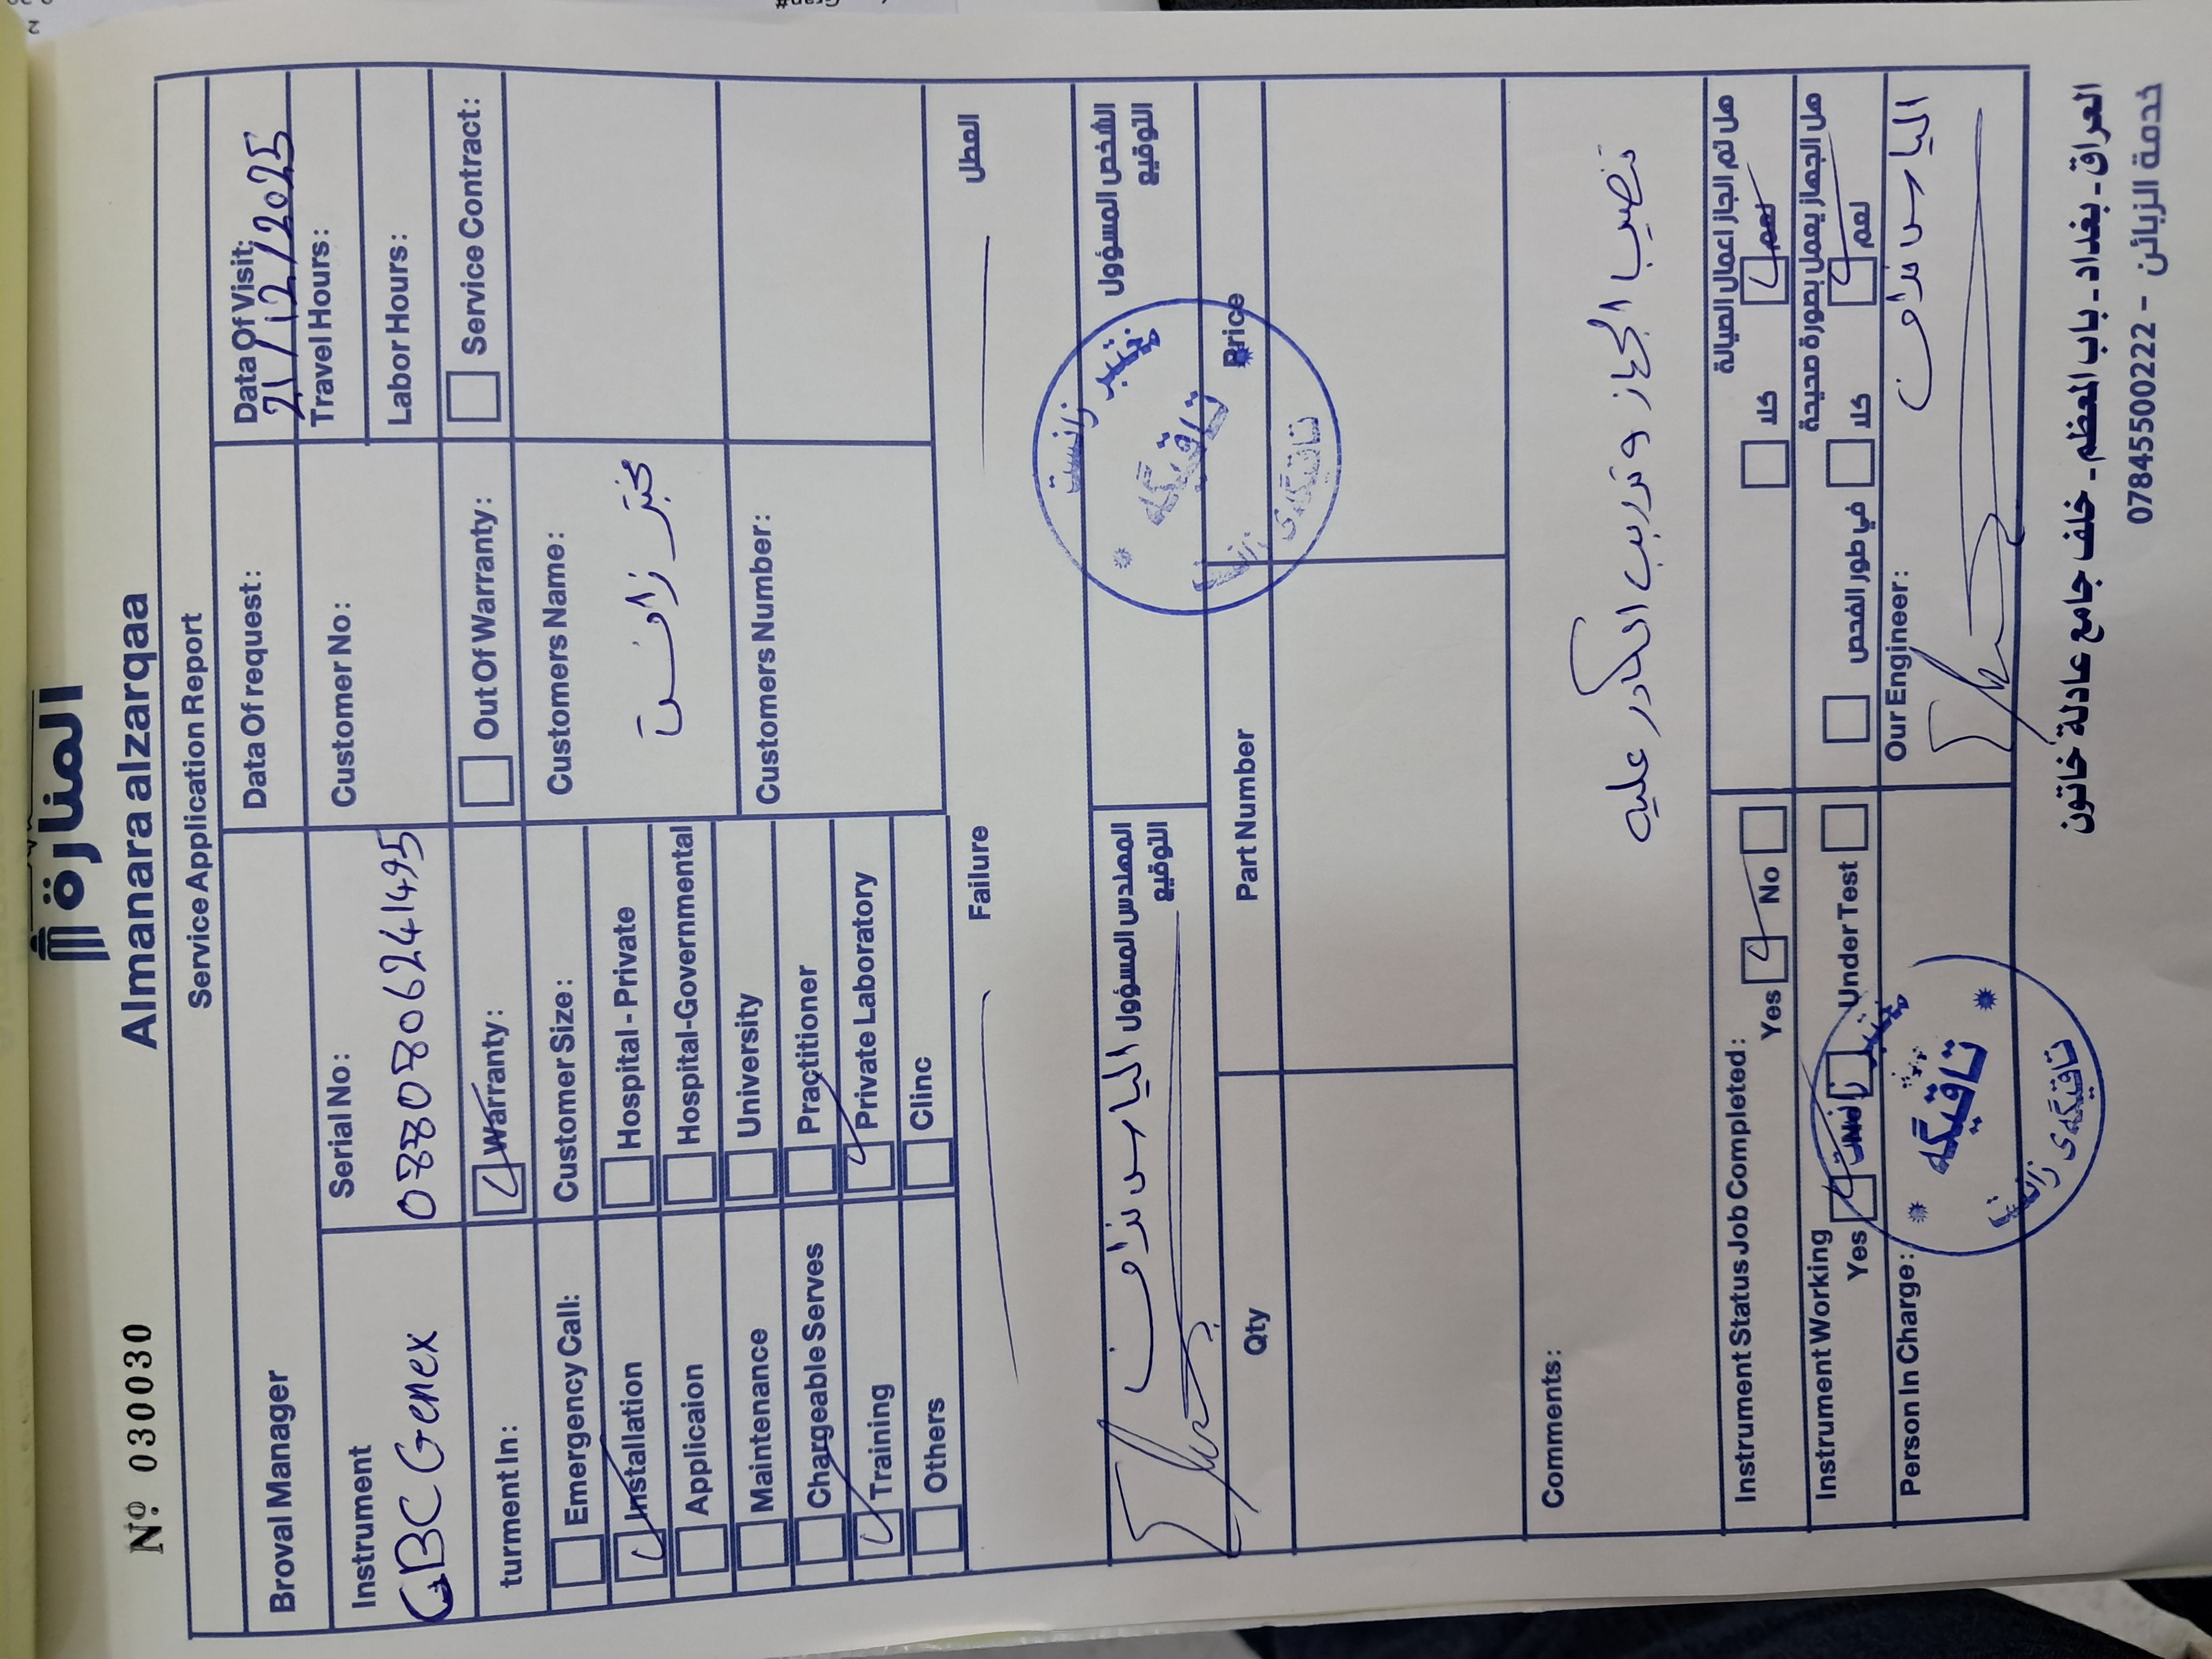 المنارة
Nº 030030
Almanara alzarqaa
Service Application Report
Broval Manager
Data Of request:
Data Of Visit:
21/12/2025
Instrument
CBC Genex
Serial No:
0880806241495
Customer No:
Travel Hours:
Labor Hours:
turment In:
Warranty:
Out Of Warranty:
Service Contract:
Emergency Call:
Customer Size:
Customers Name:
Installation
Hospital - Private
مختبر زانست
Applicaion
Hospital-Governmental
Maintenance
University
Customers Number:
Chargeable Serves
Practitioner
Training
Private Laboratory
Others
Clinc
Failure
العطل
المهندس المسؤول
التوقيع
الشخص المسؤول
التوقيع
زانست
تاقیگه
تاقیگەی
Qty
Part Number
Price
Comments:
تنصيب الجهاز و تدريب الكادر عليه
Instrument Status Job Completed:
Yes
No
هل تم انجاز اعمال الصيانة
نعم
كلا
Instrument Working
Yes
No
Under Test
هل الجهاز يعمل بصورة صحيحة
نعم
كلا
في طور الفحص
Person In Charge:
Our Engineer:
زانست
تاقیگه
تاقیگەی
العراق - بغداد - باب المعظم - خلف جامع عادلة خاتون
خدمة الزبائن - 07845500222